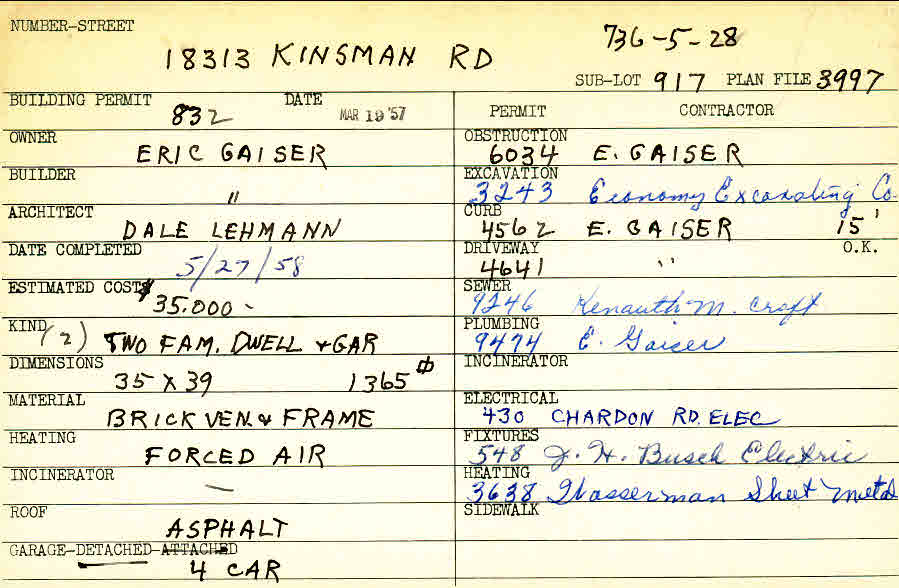 NUMBER-STREET
18313 KINSMAN RD
736-5-28
SUB-LOT 917 PLAN FILE 3997
BUILDING PERMIT 832 DATE MAR 19 '57
PERMIT CONTRACTOR
OWNER ERIC GAISER
OBSTRUCTION 6034 E. GAISER
BUILDER "
EXCAVATION 3243 Economy Excavating Co.
ARCHITECT DALE LEHMANN
CURB 4562 E. GAISER 15'
DATE COMPLETED 5/27/58
DRIVEWAY 4641 " O.K.
ESTIMATED COST $ 35.000-
SEWER 9246 M. Croft
KIND (2) TWO FAM. DWELL & GAR
PLUMBING 9474 E. Gaiser
DIMENSIONS 35 X 39 1365
INCINERATOR
MATERIAL BRICK VEN. & FRAME
ELECTRICAL 430 CHARDON RD. ELEC
HEATING FORCED AIR
FIXTURES 548 J. H. Busch Electric
INCINERATOR —
HEATING 3638 Wasserman Sheet Metal
ROOF ASPHALT
SIDEWALK
GARAGE-DETACHED-ATTACHED
4 CAR